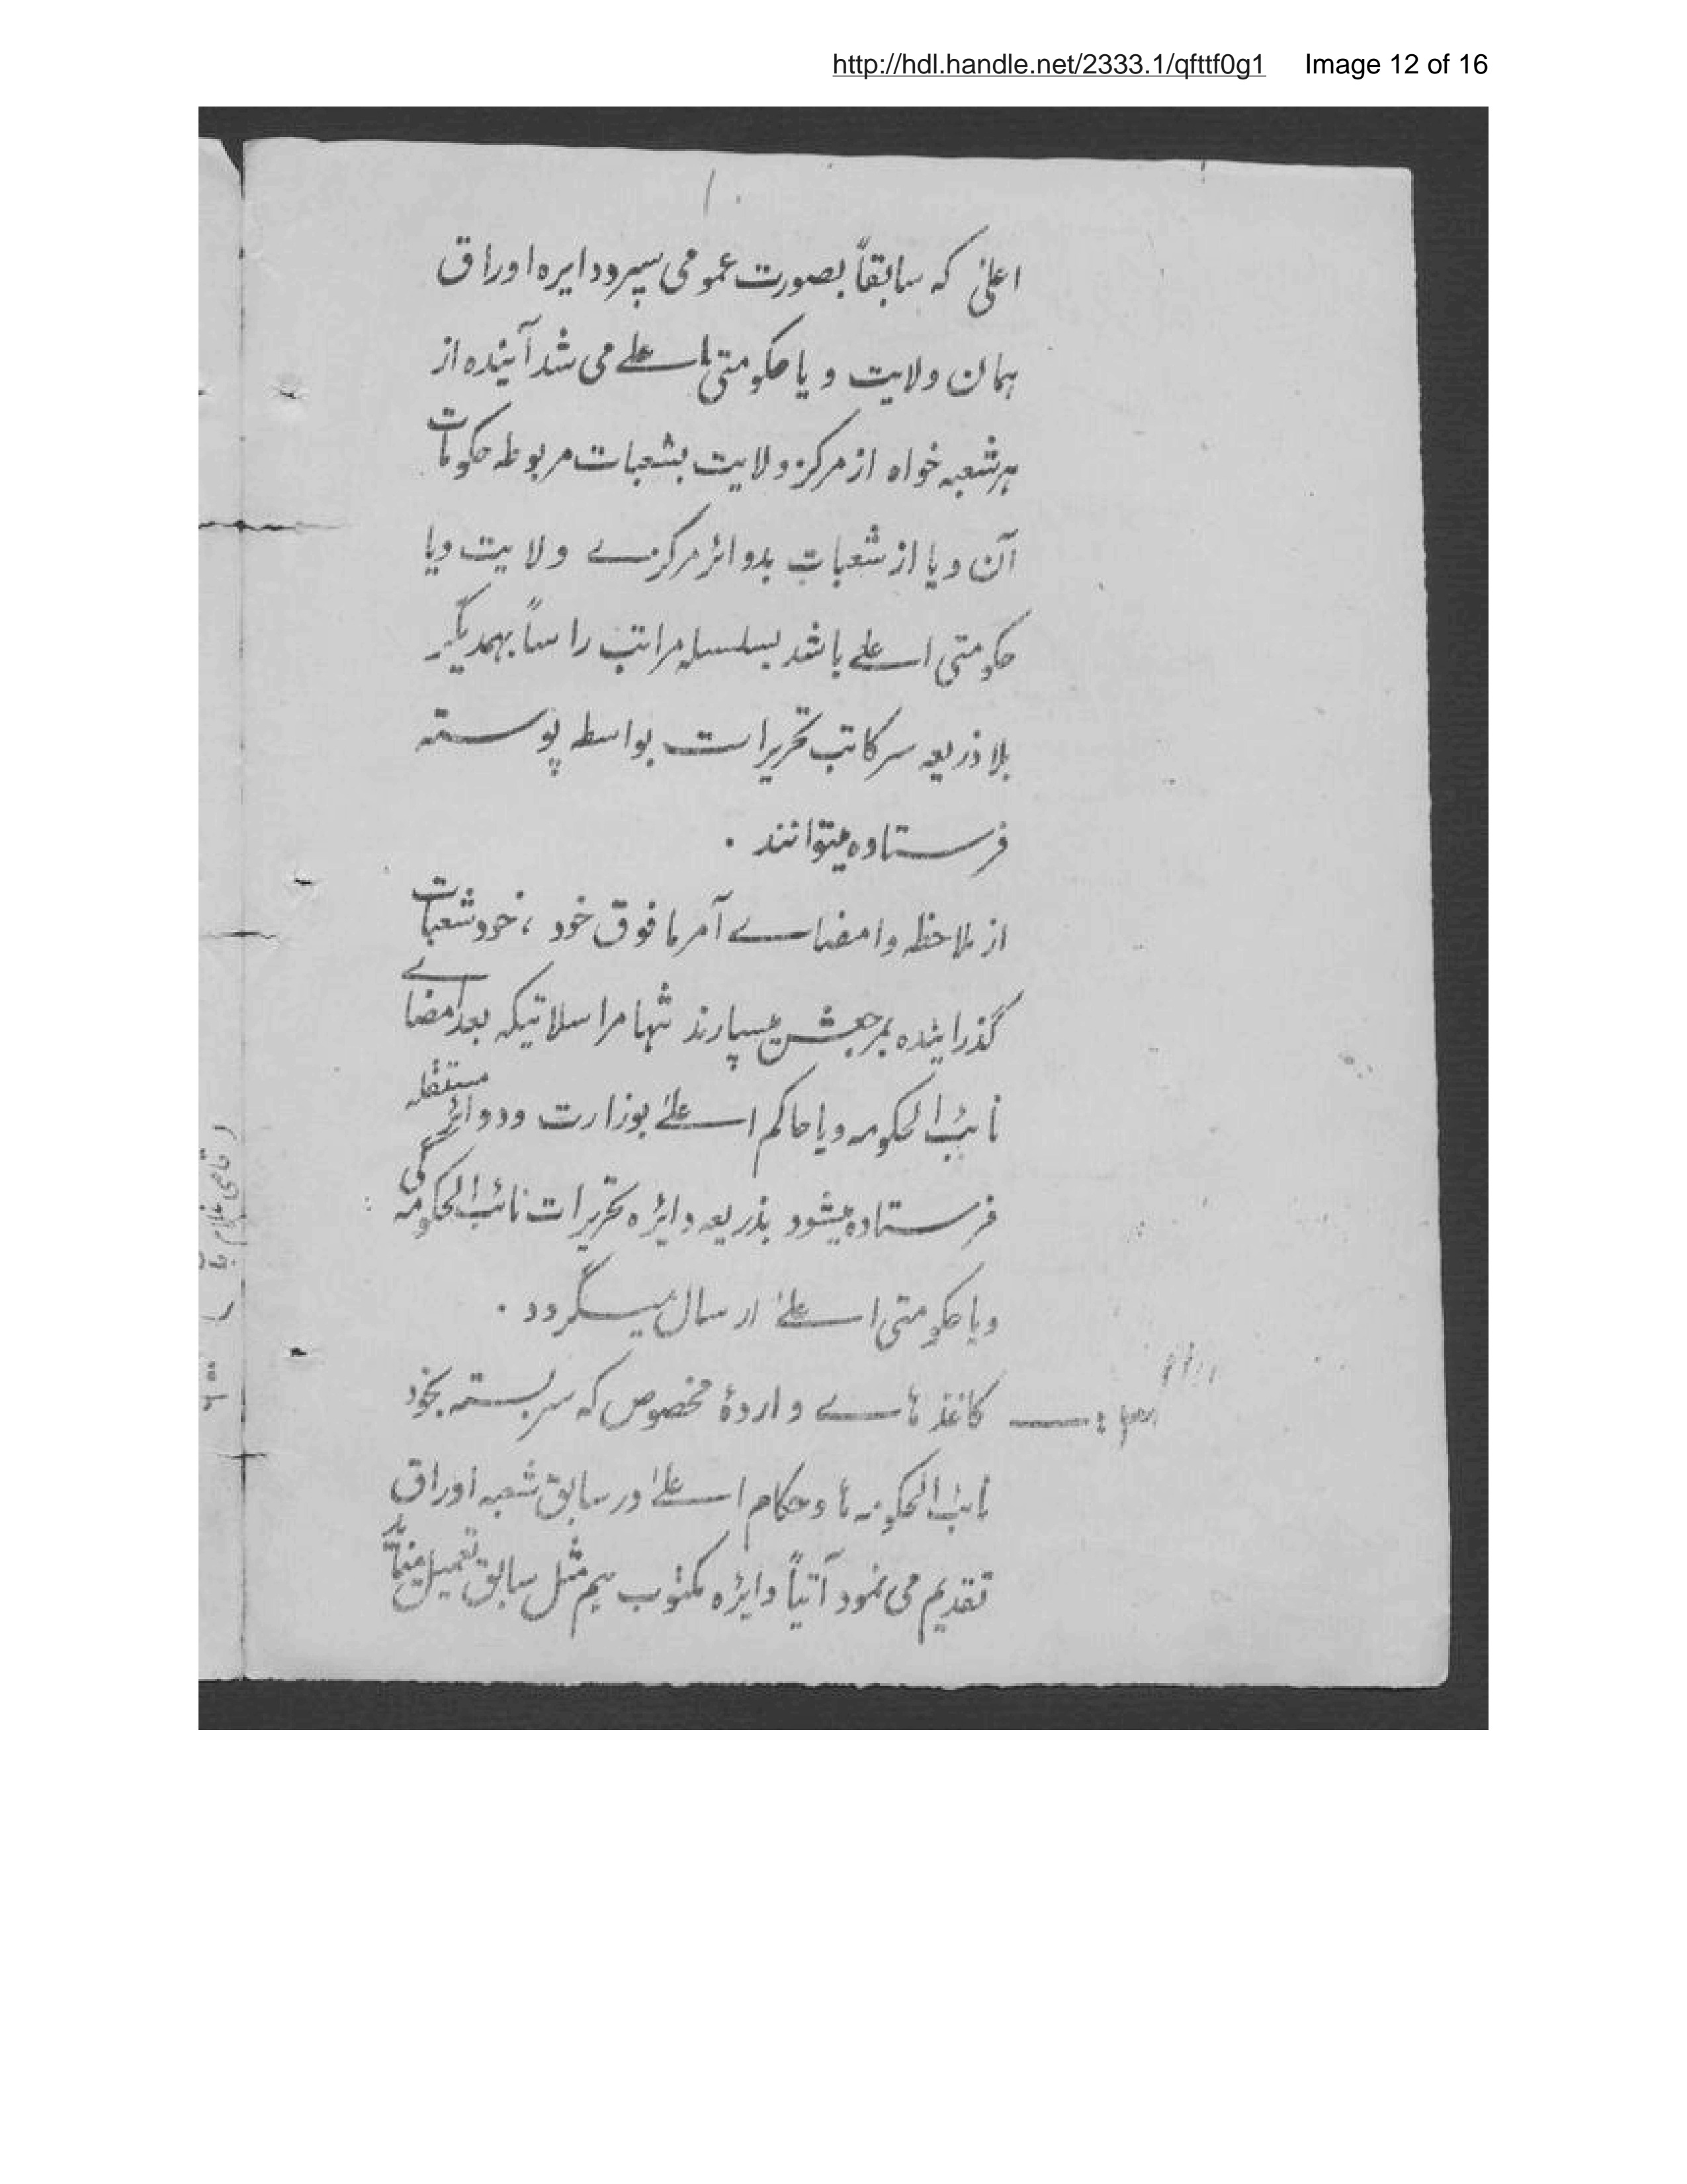 http://hdl.handle.net/2333.1/qfttf0g1 Image 12 of 16
۱۰
اعلیٰ که سابقاً بصورت عمومی سپرد دایره اوراق
همان ولایت و یا حکومتی اعلے می شد آینده از
هر شعبه خواه از مرکز ولایت بشعبات مربوطه حکومات
آن و یا از شعبات بدوائر مرکزے ولایت ویا
حکومتی اعلے باشد بسلسله مراتب راساً بهمدیگر
بلا ذریعه سرکاتب تحریرات بواسطه پوسته
فرستاده میتوانند .
از ملاحظه و امضاے آمر مافوق خود ، خود شعبات
گذرانیده بمرجعش میسپارند تنها مراسلاتیکه بعد امضاے
نائب الحکومه ویا حاکم اعلےٰ بوزارت ودوائر مستقله
فرستاده میشود بذریعه دائره تحریرات نائب الحکومه گی
ویا حکومتی اعلےٰ ارسال میگردد .
۳ : — کاغذ هاے واردهٔ مخصوص که سربسته بخود
نائب الحکومه ها و حکام اعلےٰ در سابق شعبه اوراق
تقدیم می نمود آتیاً دایره مکتوب هم مثل سابق تعمیل مینماید